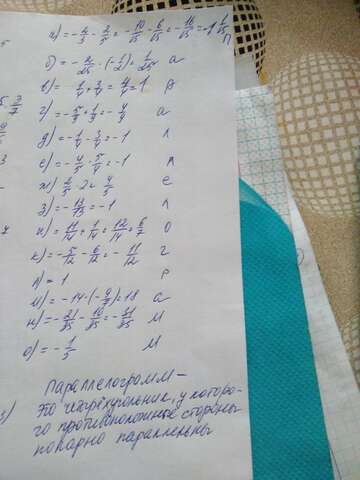 а) = -2/3 - 2/5 = -10/15 - 6/15 = -16/15 = -1 1/15 П
б) = - 2/25 · (-1/2) = 1/25 а
в) = 1/4 + 3/4 = 4/4 = 1 Р
а
д) = -1/4 - 3/4 = -1 Л
е) = -4/5 · 5/4 = -1 Л
ж) 2/5 · 2 = 4/5 е
з) = -13/13 = -1 Л
и) = 11/14 + 1/14 = 12/14 = 6/7 О
к) = -5/12 - 6/12 = -11/12 Г
л) = 1 Р
м) = -14 · (-9/7) = 18 а
н) = -21/35 - 10/35 = -31/35 М
о) = -1/5 М
Параллелограмм -
это четырёхугольник, у которо-
го противоположные стороны
попарно параллельны